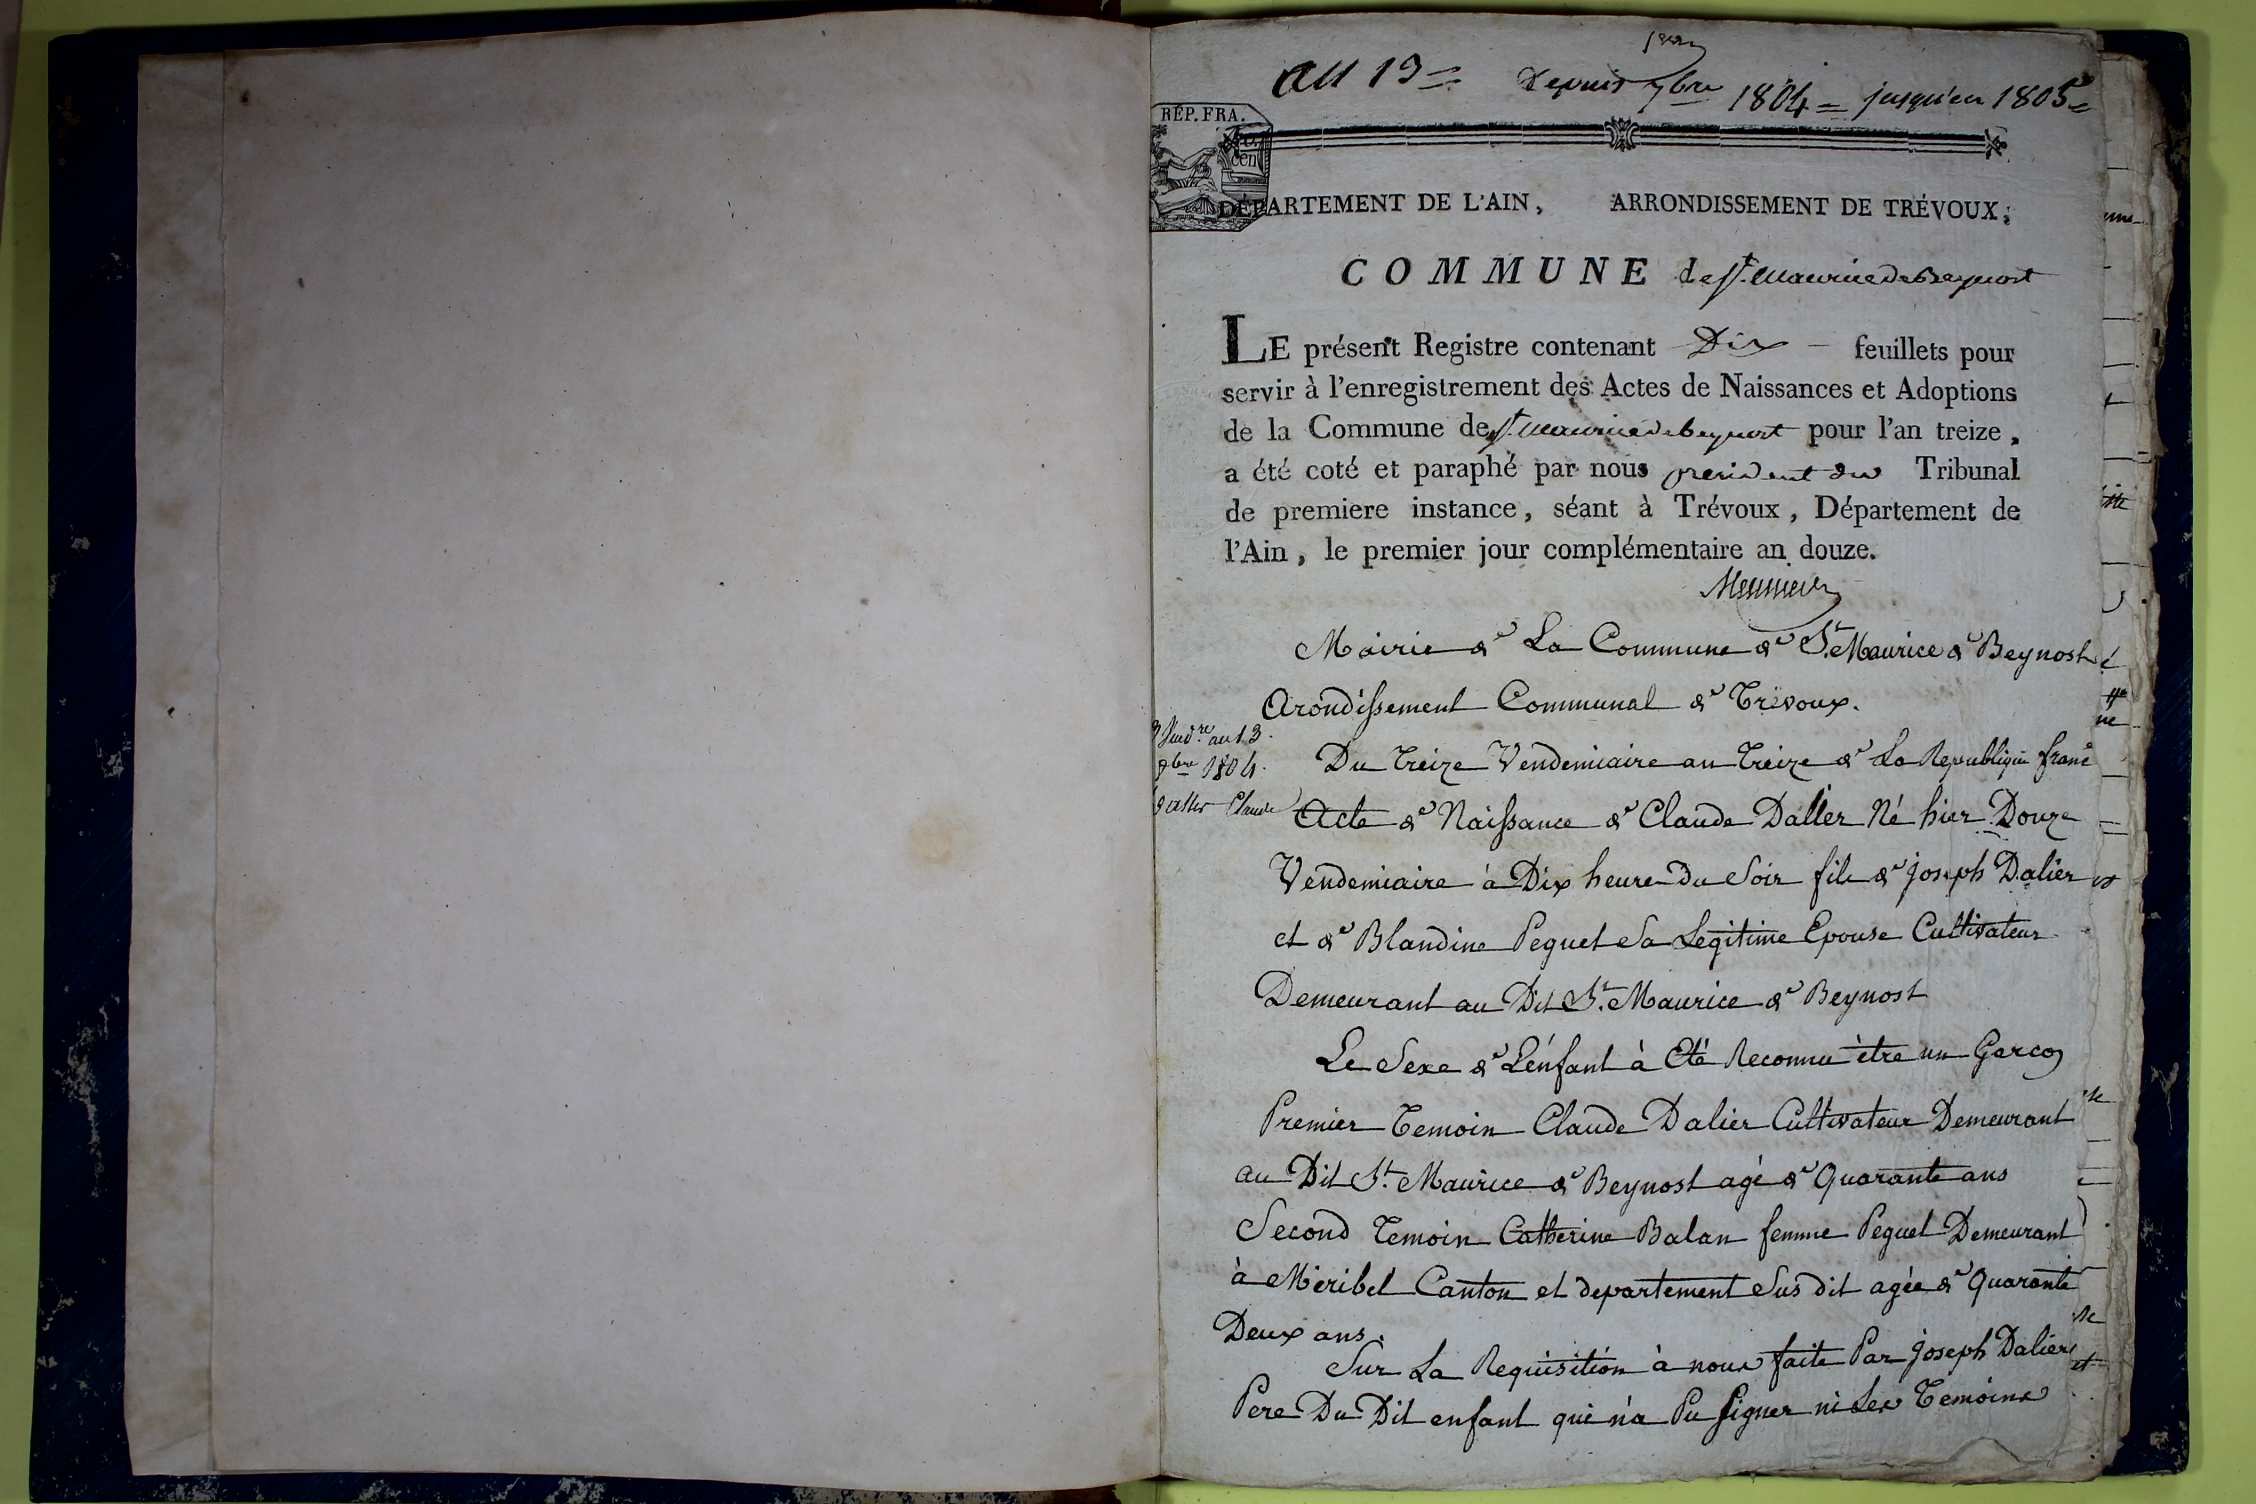 an 13 = Depuis 7bre 1804 = jusqu'en 1805 =
RÉP. FRA.
cen
DÉPARTEMENT DE L'AIN, ARRONDISSEMENT DE TRÉVOUX,
COMMUNE de St. Maurice de Beynost
LE présent Registre contenant Dix feuillets pour
servir à l'enregistrement des Actes de Naissances et Adoptions
de la Commune de St. Maurice de beynost pour l'an treize,
a été coté et paraphé par nous president du Tribunal
de premiere instance, séant à Trévoux, Département de
l'Ain, le premier jour complémentaire an douze.
Mairie de La Commune de St. Maurice de Beynost
Arondissement Communal de Trévoux.
Vend.re an 13.
8bre 1804.
Dallier Claude
Du Treize Vendemiaire an Treize de La Republique franc
Acte de Naissance de Claude Dallier Né hier Douze
Vendemiaire à Dix heure du Soir fils de joseph Dalier
et de Blandine Peguet Sa Legitime Epouse Cultivateur
Demeurant au Dit St. Maurice de Beynost
Le Sexe de L'énfant à Eté Reconnu être un Garcon
Premier Temoin Claude Dalier Cultivateur Demeurant
au Dit St. Maurice de Beynost agé de Quarante ans
Second Temoin Catherine Balan femme Peguet Demeurant
à Meribel Canton et departement Sus dit agée de Quarante
Deux ans.
Sur La Requisition à nous faite Par joseph Dalier
Pere Du Dit enfant qui n'a Pu Signer ni Les Temoins